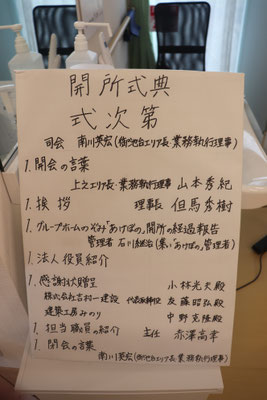 開所式典
式次第
司会 南川英宏(御池台エリア長・業務執行理事)
1. 開会の言葉
上之エリア長・業務執行理事 山本秀紀
1. 挨拶 理事長 但馬秀樹
1. グループホームのぞみ「あけぼの」開所の経過報告
管理者 石川 (集い「あけぼの」管理者)
1. 法人役員紹介
1. 感謝状贈呈 小林光夫殿
株式会社吉村一建設 代表取締役 友藤昭弘殿
建築工房みのり 中野克隆殿
1. 担当職員の紹介 主任 赤澤高幸
1. 閉会の言葉
南川英宏(御池台エリア長・業務執行理事)